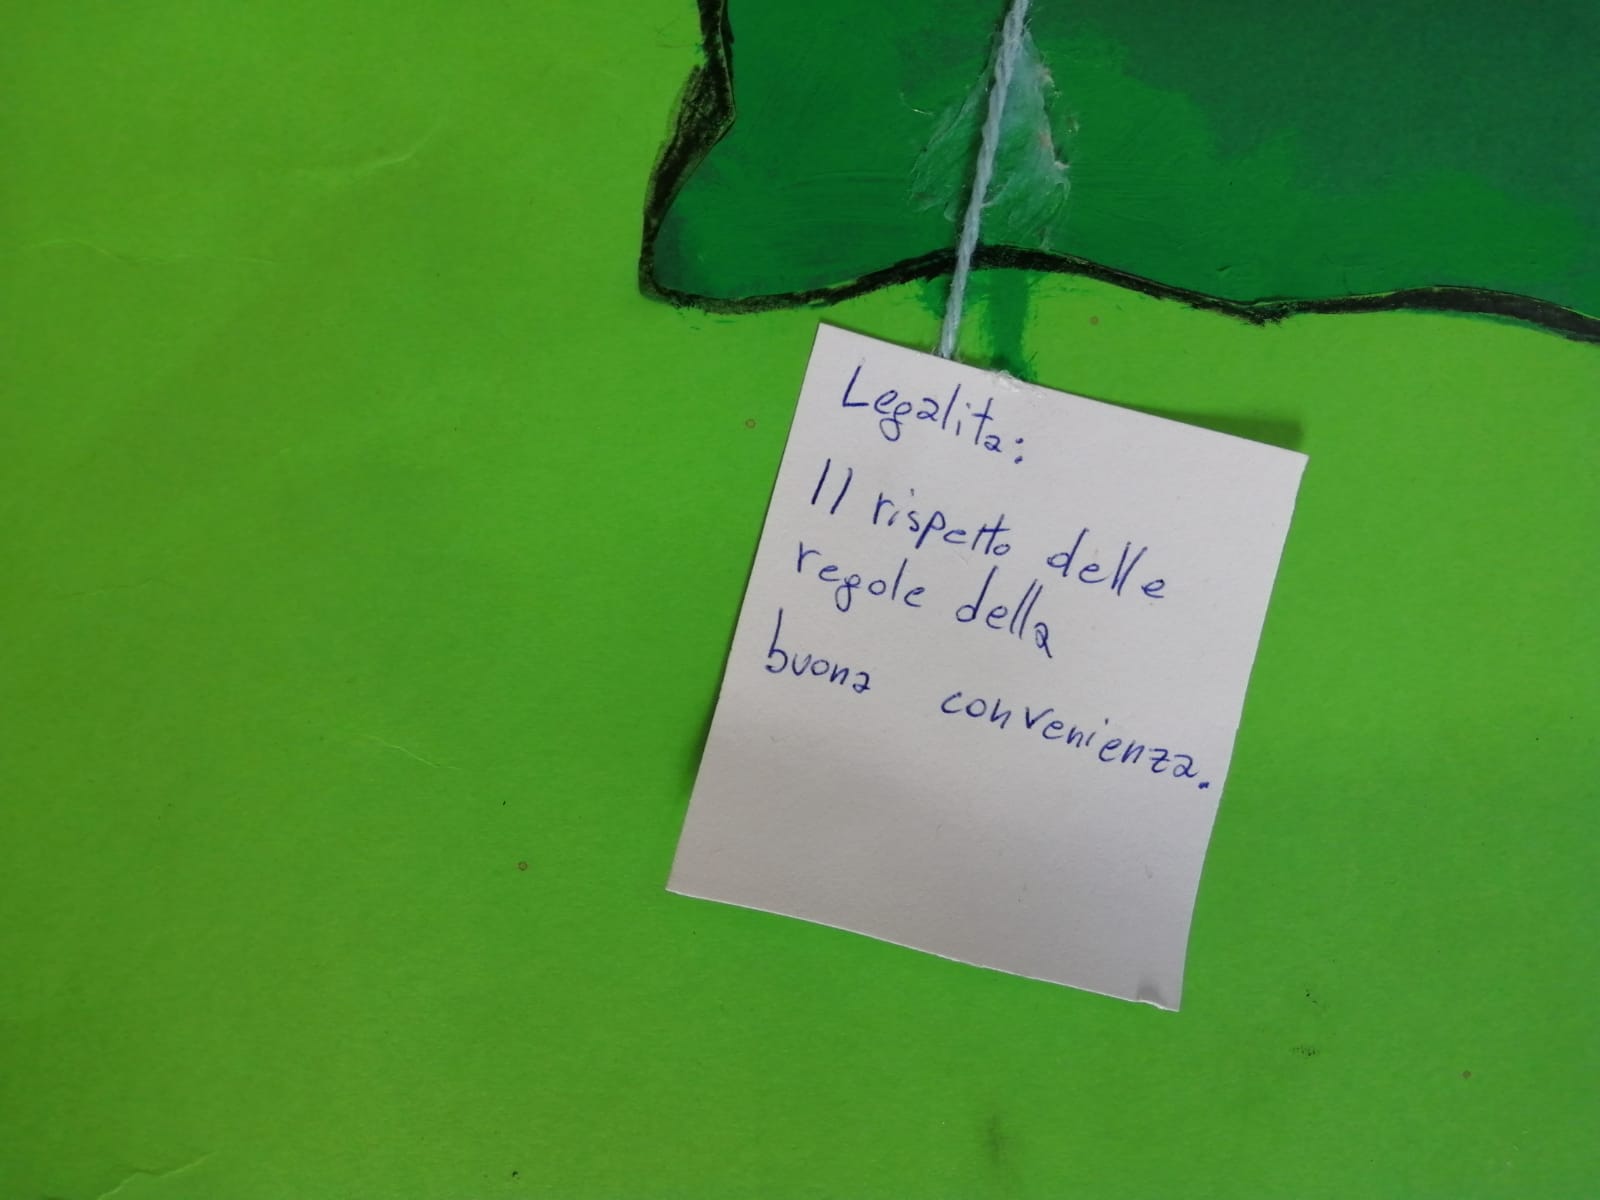 Legalita:
Il rispetto delle
regole della
buona convenienza.